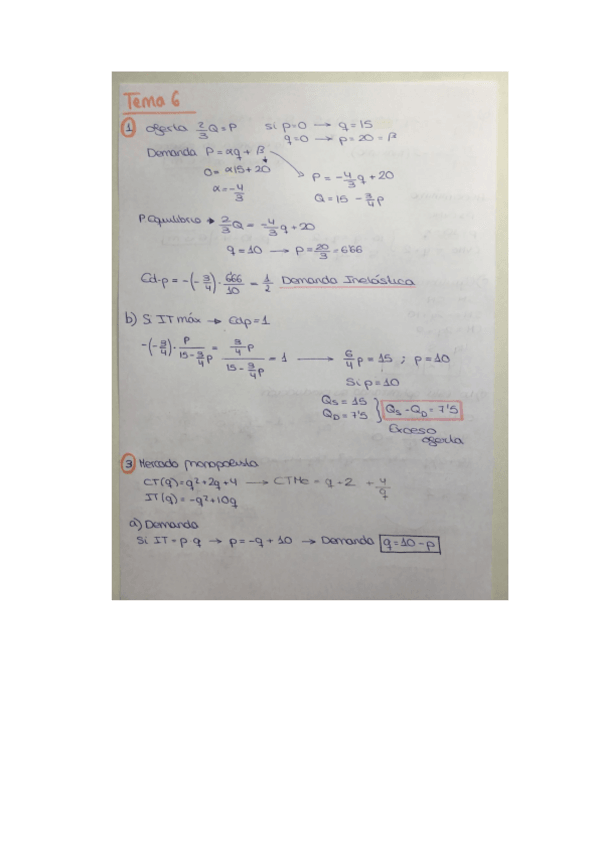 Tema 6
1 oferta 2/3 Q = P si p=0 → q=15
q=0 → p=20=β
Demanda P=αq+β
0= α15+20
α=-4/3
P=-4/3 q+20
Q=15-3/4 p
P Equilibrio → 2/3 Q = -4/3 q+20
q=10 → p=20/3=6'66
Edp=-(-3/4)·6'66/10=1/2 Demanda Inelástica
b) Si IT máx → Edp=1
-(-3/4)·P/(15-3/4 p) = (3/4 p)/(15-3/4 p) = 1 → 6/4 p=15 ; p=10
Si p=10
Qs=15
QD=7'5 } Qs-QD=7'5
Exceso
oferta
3 Mercado monopolista
CT(q)=q²+2q+4 → CTMe = q+2 + 4/q
IT(q)=-q²+10q
a) Demanda
Si IT=p·q → p=-q+10 → Demanda q=10-p